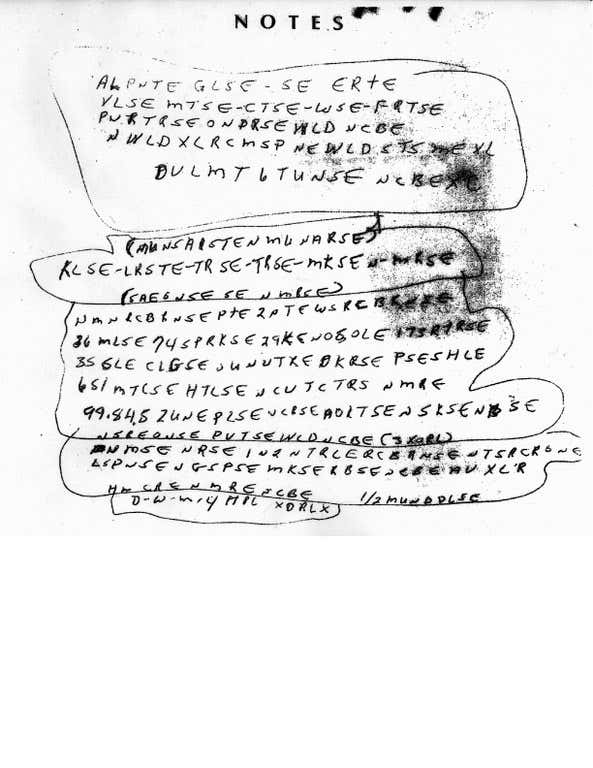 NOTES
ALPNTE GLSE-SE ERTE
VLSE MTSE-CTSE-WSE-FRTSE
PNRTRSEONDRSEWLD NCBE
NWLDXLRCMSP NEWLDSTSMEXL
DULMT6TUNSE NCBEXL
(MUNSAISTENMUNARSE)
KLSE-LRSTE-TRSE-TRSE-MKSEN-MRSE
(SAEGNSESE NMRSE)
NMNRCBRNSEPTE2PTEWSRCBRNSE
36MLSE 74SPRKSE29KENOSOLE 173RTRSE
35GLE CLGSEOUNUTXEDKRSE PSESHLE
651MTCSE HTLSENCUTCTRS NMRE
99.84.52UNEPLSENCRSEAOLTSENSKSENBSE
NSREONSE PUTSEWLDNCBE(3XORL)
NMSE NRSE IN2NTRLERCBRNSENTSRCRONE
LSPNSENGSPSEMKSERBSENCBEAUXL'R
HM CRENMRENCBE 1/2MUNDDLSE
D-W-M-4 MPL XDRLX